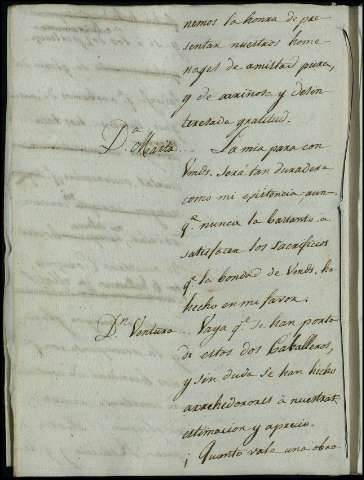 nemos la honra de pre-
sentar nuestros home-
nages de amistad pura,
y de cariñosa y desin-
teresada gratitud.
D.ª Marta... La mia para con
Vmds. será tan duradera
como mi existencia, aun-
q.e nunca la bastante a
satisfazer los sacrificios
q.e la bondad de Vmds. ha
hecho en mi favor.
D.n Ventura... Vaya q.e se han porta-
do estos dos Caballeros,
y sin duda se han hecho
acrehedores à nuestra
estimacion y aprecio.
¡Quanto vale una obra